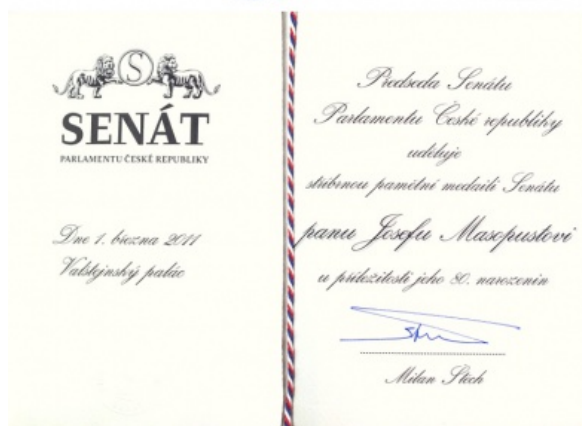 S
SENÁT
PARLAMENTU ČESKÉ REPUBLIKY
Dne 1. března 2011
Valdštejnský palác
Předseda Senátu
Parlamentu České republiky
uděluje
stříbrnou pamětní medaili Senátu
panu Josefu Masopustovi
u příležitosti jeho 80. narozenin
Milan Štěch